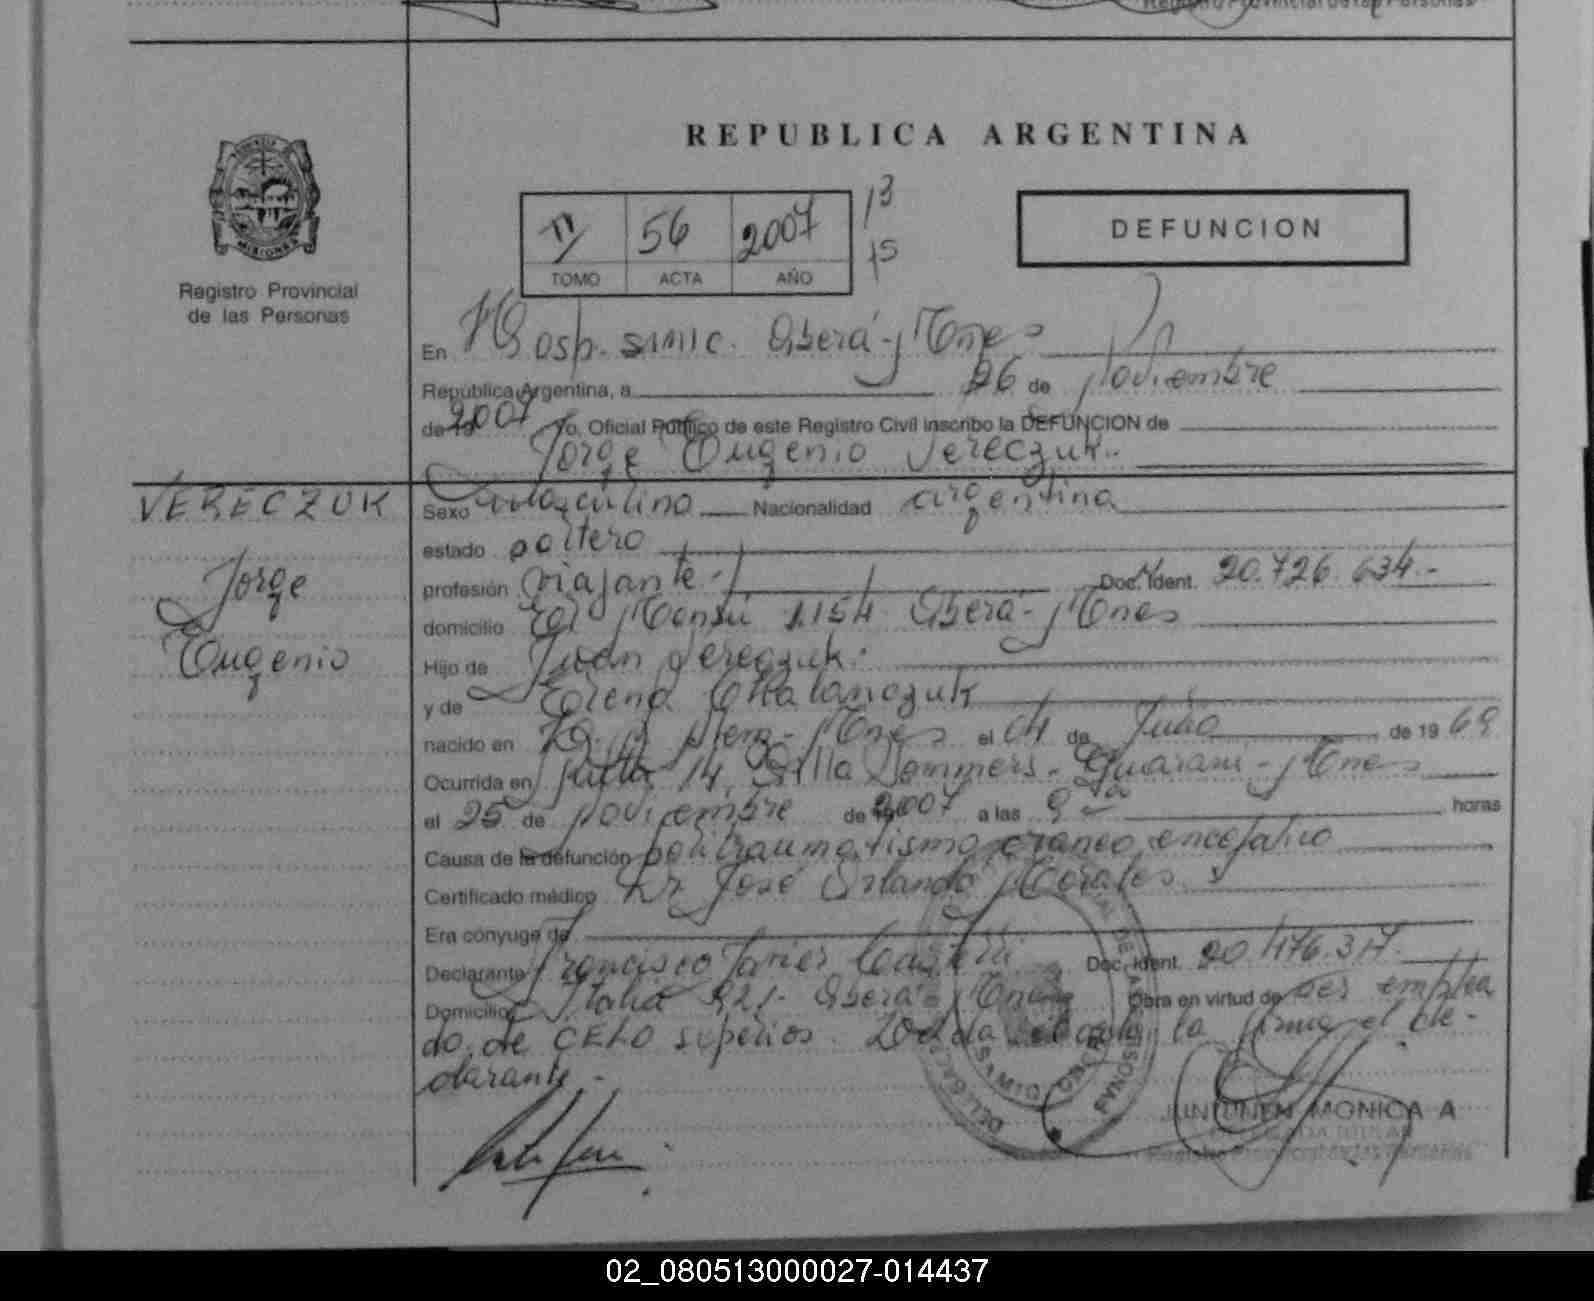 REPUBLICA ARGENTINA
MISIONES
Registro Provincial
de las Personas
II 56 2007
TOMO ACTA AÑO
13
15
DEFUNCION
En Hosp. SAMIC. Oberá - Mnes
República Argentina, a 26 de Noviembre
de 19 2007 Yo, Oficial Público de este Registro Civil inscribo la DEFUNCION de
Jorge Eugenio Vereczuk.
VERECZUK
Jorge
Eugenio
Sexo masculino Nacionalidad argentina
estado soltero
profesión viajante.- Doc. Ident. 20.726.634.-
domicilio El Mensú 1154 Oberá - Mnes
Hijo de Juan Vereczuk.
y de Elena
nacido en L. N. Alem - Mnes el 04 de Julio de 19 69
Ocurrida en Ruta 14, Guaraní - Mnes
el 25 de noviembre de 19 2007 a las 9 horas
Causa de la defunción politraumatismo craneo encefalico
Certificado médico Dr José Orlando Morales
Era cónyuge de
Declarante Francisco Javier Doc. Ident. 20.476.317.
Domicilio Italia 321 - Oberá - Mnes Obra en virtud de ser emplea
do de CELO superior. Leída el acta la firma el de-
clarante.-
JUNTUNEN MONICA A
DELEGADA TITULAR
Registro Provincial de las Personas
02_080513000027-014437